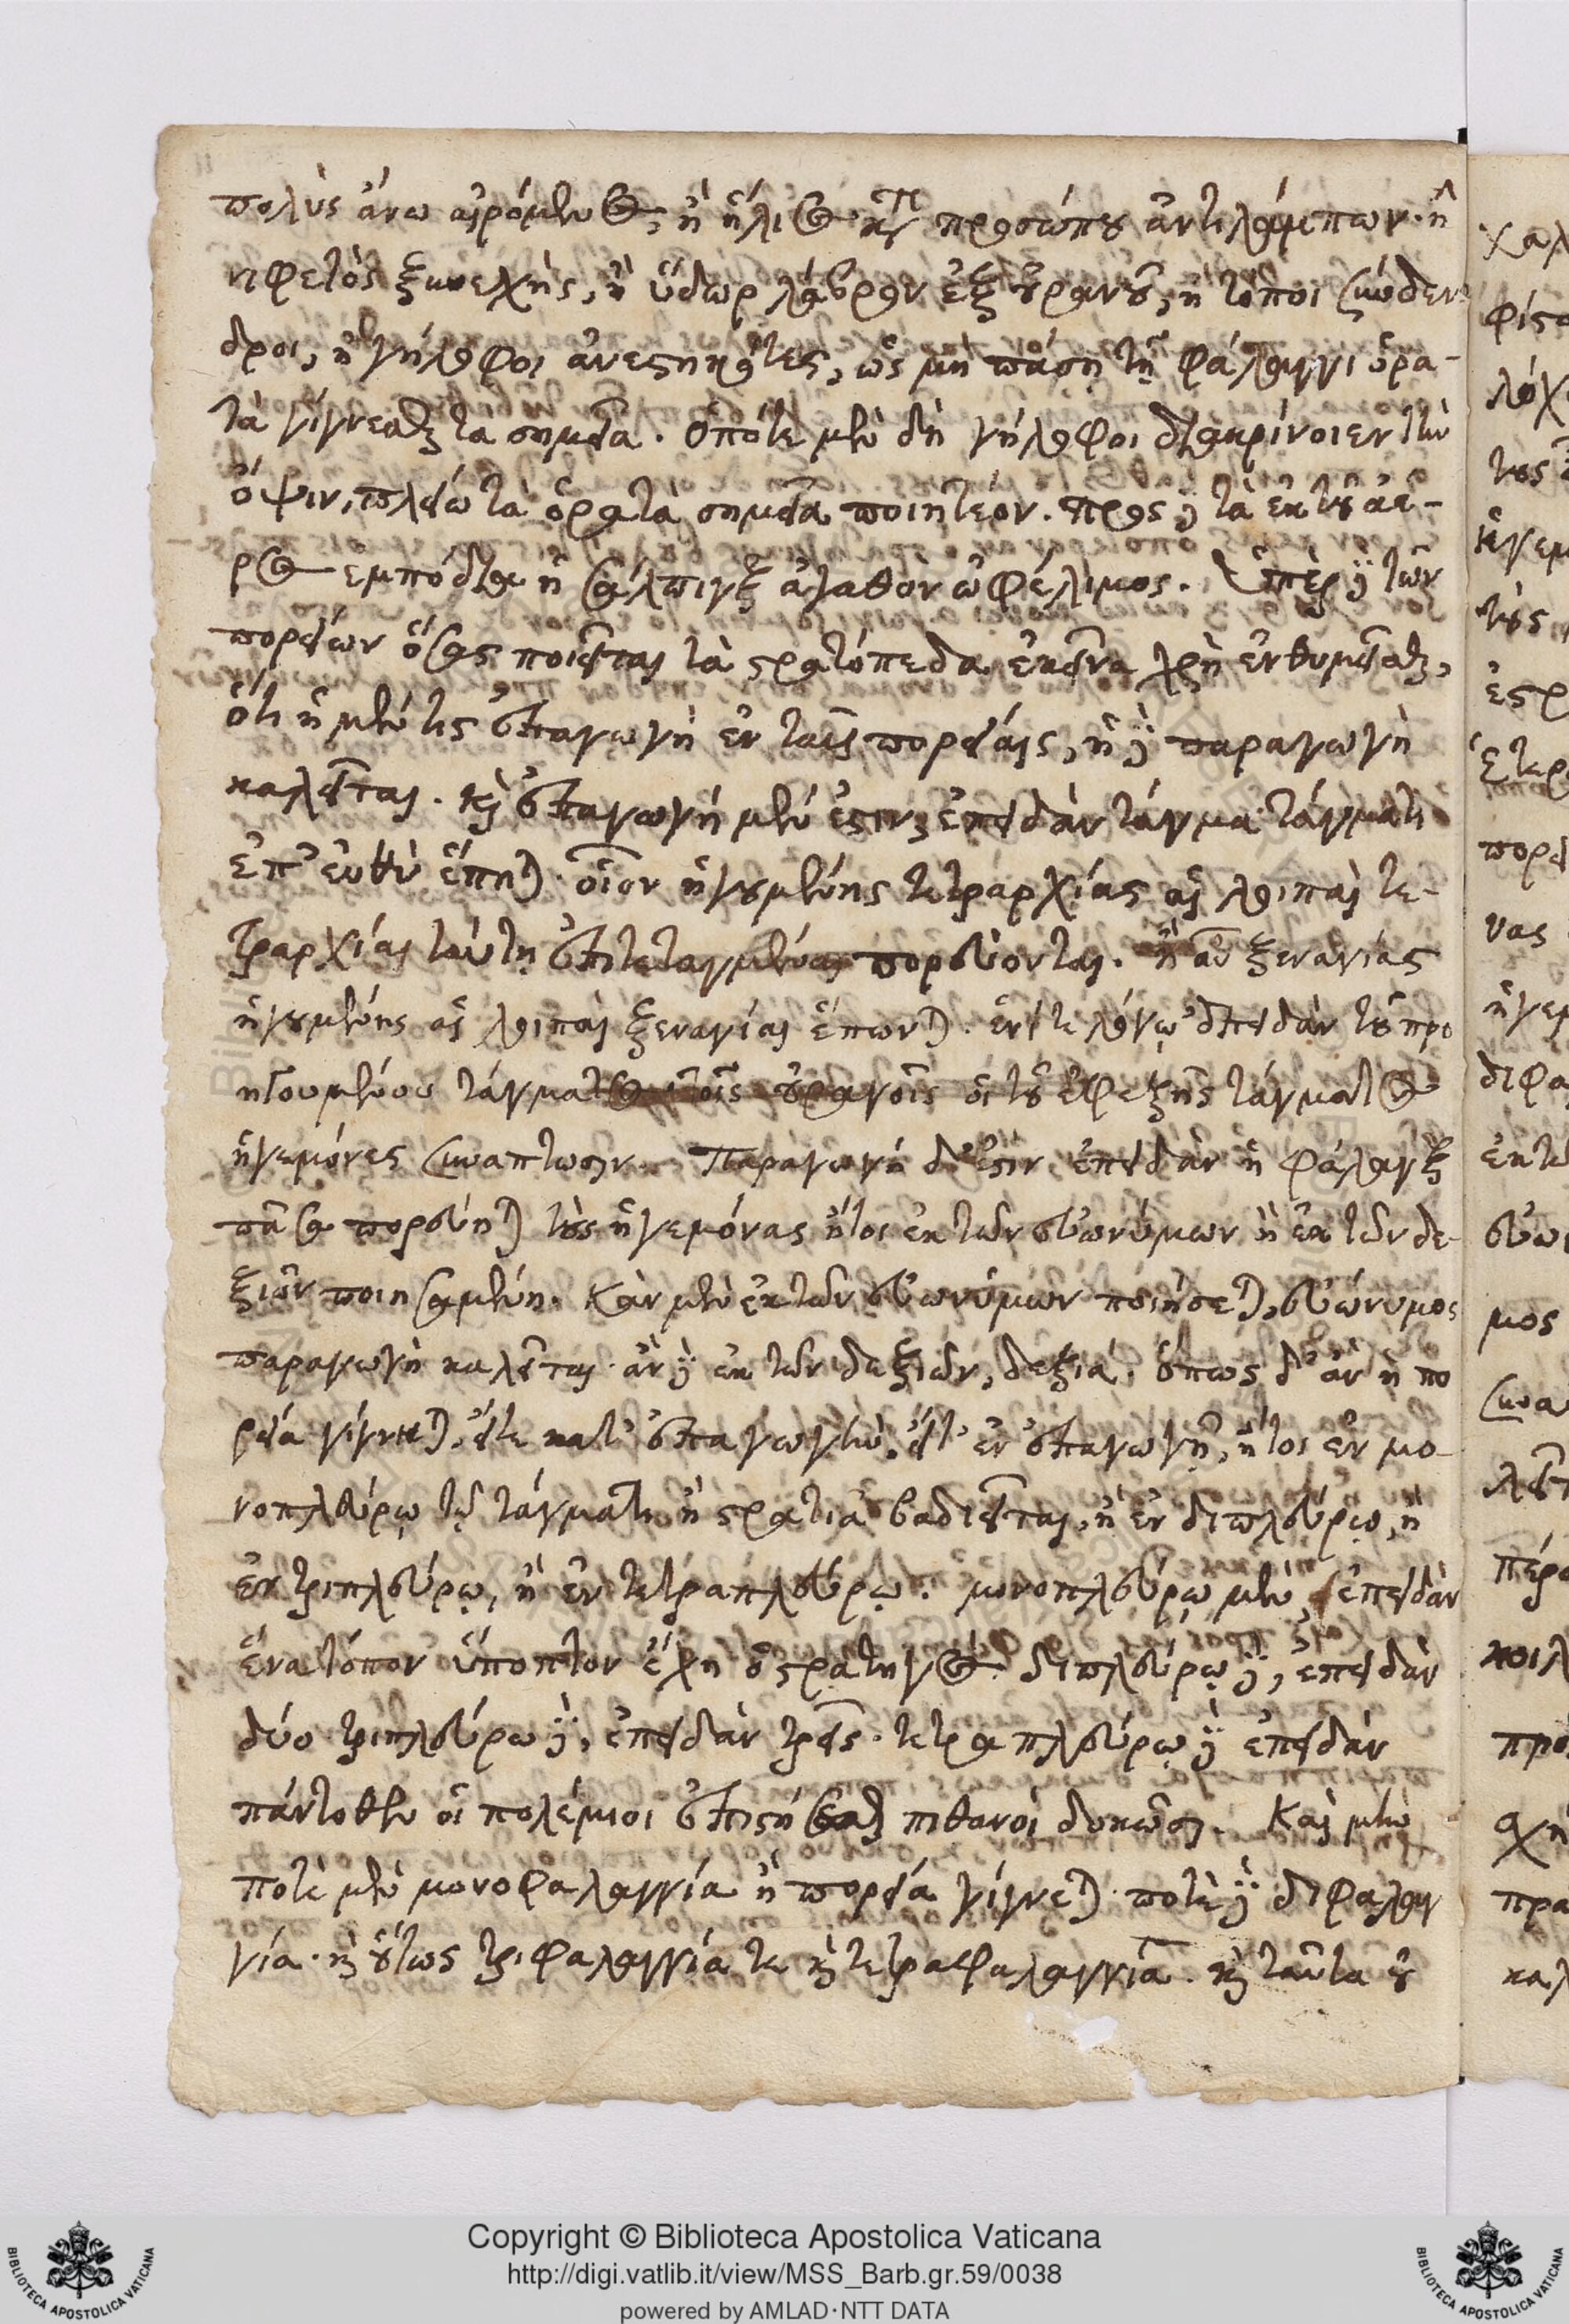 πολὺς ἄνω αἰρόμενος, ἢ ἥλιος κατὰ προσώπου ἀντιλάμπων· ἢ
νιφετὸς ξυνεχὴς, ἢ ὕδωρ λάβρον ἐξ οὐρανοῦ, ἢ τόποι σύνδεν
δροι, ἢ γήλοφοι ἀνεστηκότες, ὡς μὴ πάσῃ τῇ φάλαγγι ὁρα-
τὰ γίγνεσθαι τὰ σημεῖα. Ὁπότε μὲν δὴ γήλοφοι διακρίνοιεν τὴν
ὄψιν, πλείω τὰ ὁρατὰ σημεῖα ποιητέον. πρὸς δὲ τὰ ἐκ τοῦ ἀέ-
ρος ἐμπόδια ἡ σάλπιγξ ἀγαθὸν ὠφέλιμος. Ὑπὲρ δὲ τῶν
πορειῶν ὅσας ποιεῖται τὰ στρατόπεδα ἐκεῖνα χρὴ ἐνθυμεῖσθαι,
ὅτι ἡ μέν τις ἐπαγωγὴ ἐν ταῖς πορείαις, ἡ δὲ παραγωγὴ
καλεῖται. καὶ ἐπαγωγὴ μέν ἐστιν, ἐπειδὰν τάγμα τάγματι
ἐπ' εὐθὺ ἕπηται· οἷον ἡγουμένης τετραρχίας αἱ λοιπαὶ τε-
τραρχίαι ταύτῃ ἐπιτεταγμέναι πορεύονται. ἢ αὖ ξεναγίας
ἡγουμένης αἱ λοιπαὶ ξεναγίαι ἕπωνται. ἑνί τε λόγῳ ἐπειδὰν τοῦ προ
ηγουμένου τάγματος τοῖς οὐραγοῖς οἱ τοῦ ἐφεξῆς τάγματος
ἡγεμόνες συνάπτωσιν. Παραγωγὴ δ' ἐστὶν ἐπειδὰν ἡ φάλαγξ
πᾶσα πορεύηται τοὺς ἡγεμόνας ἤτοι ἐκ τῶν εὐωνύμων ἢ ἐκ τῶν δε-
ξιῶν ποιησαμένη. Κἂν μὲν ἐκ τῶν εὐωνύμων ποιήσεται, εὐώνυμος
παραγωγὴ καλεῖται· ἂν δὲ ἐκ τῶν δεξιῶν, δεξιά. ὅπως δ' ἂν ἡ πο
ρεία γίγνηται, εἴτε κατ' ἐπαγωγὴν, εἴτ' ἐν ἐπαγωγῇ, ἤτοι ἐν μο-
νοπλεύρῳ τῷ τάγματι ἡ στρατιὰ βαδιεῖται, ἢ ἐν διπλεύρῳ, ἢ
ἐν τριπλεύρῳ, ἢ ἐν τετραπλεύρῳ. μονοπλεύρῳ μὲν, ἐπειδὰν
ἕνα τόπον ὕποπτον ἔχῃ ὁ στρατηγός· διπλεύρῳ δὲ, ἐπειδὰν
δύο· τριπλεύρῳ δὲ, ἐπειδὰν τρεῖς· τετραπλεύρῳ δὲ ἐπειδὰν
πάντοθεν οἱ πολέμιοι ἐπιστήσεσθαι πιθανοὶ δοκῶσι. Καὶ μὲν
ποτὲ μὲν μονοφαλαγγία ἡ πορεία γίγνεται· ποτὲ δὲ διφαλαγ
γία· καὶ οὕτως τριφαλαγγία τε καὶ τετραφαλαγγία. καὶ ταῦτα οὐ
Copyright © Biblioteca Apostolica Vaticana
http://digi.vatlib.it/view/MSS_Barb.gr.59/0038
powered by AMLAD·NTT DATA
BIBLIOTECA APOSTOLICA VATICANA
BIBLIOTECA APOSTOLICA VATICANA